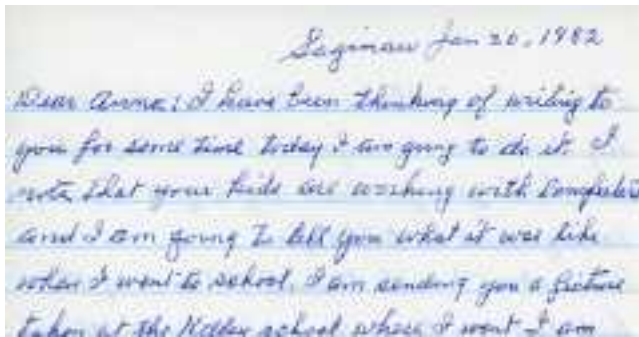 Saginaw Jan 20, 1982
Dear Anna: I have been thinking of writing to
you for some time today I am going to do it. I
note that your kids are working with Computers
and I am going to tell you what it was like
when I went to school. I am sending you a picture
taken at the school where I went I am